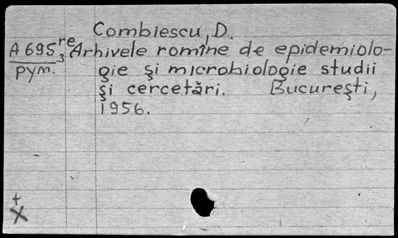 Combiescu, D.
A 695 re Arhivele romîne de epidemiolo-
3
pym. gie şi microbiologie studii
şi cercetări. Bucureşti,
1956.
+
X